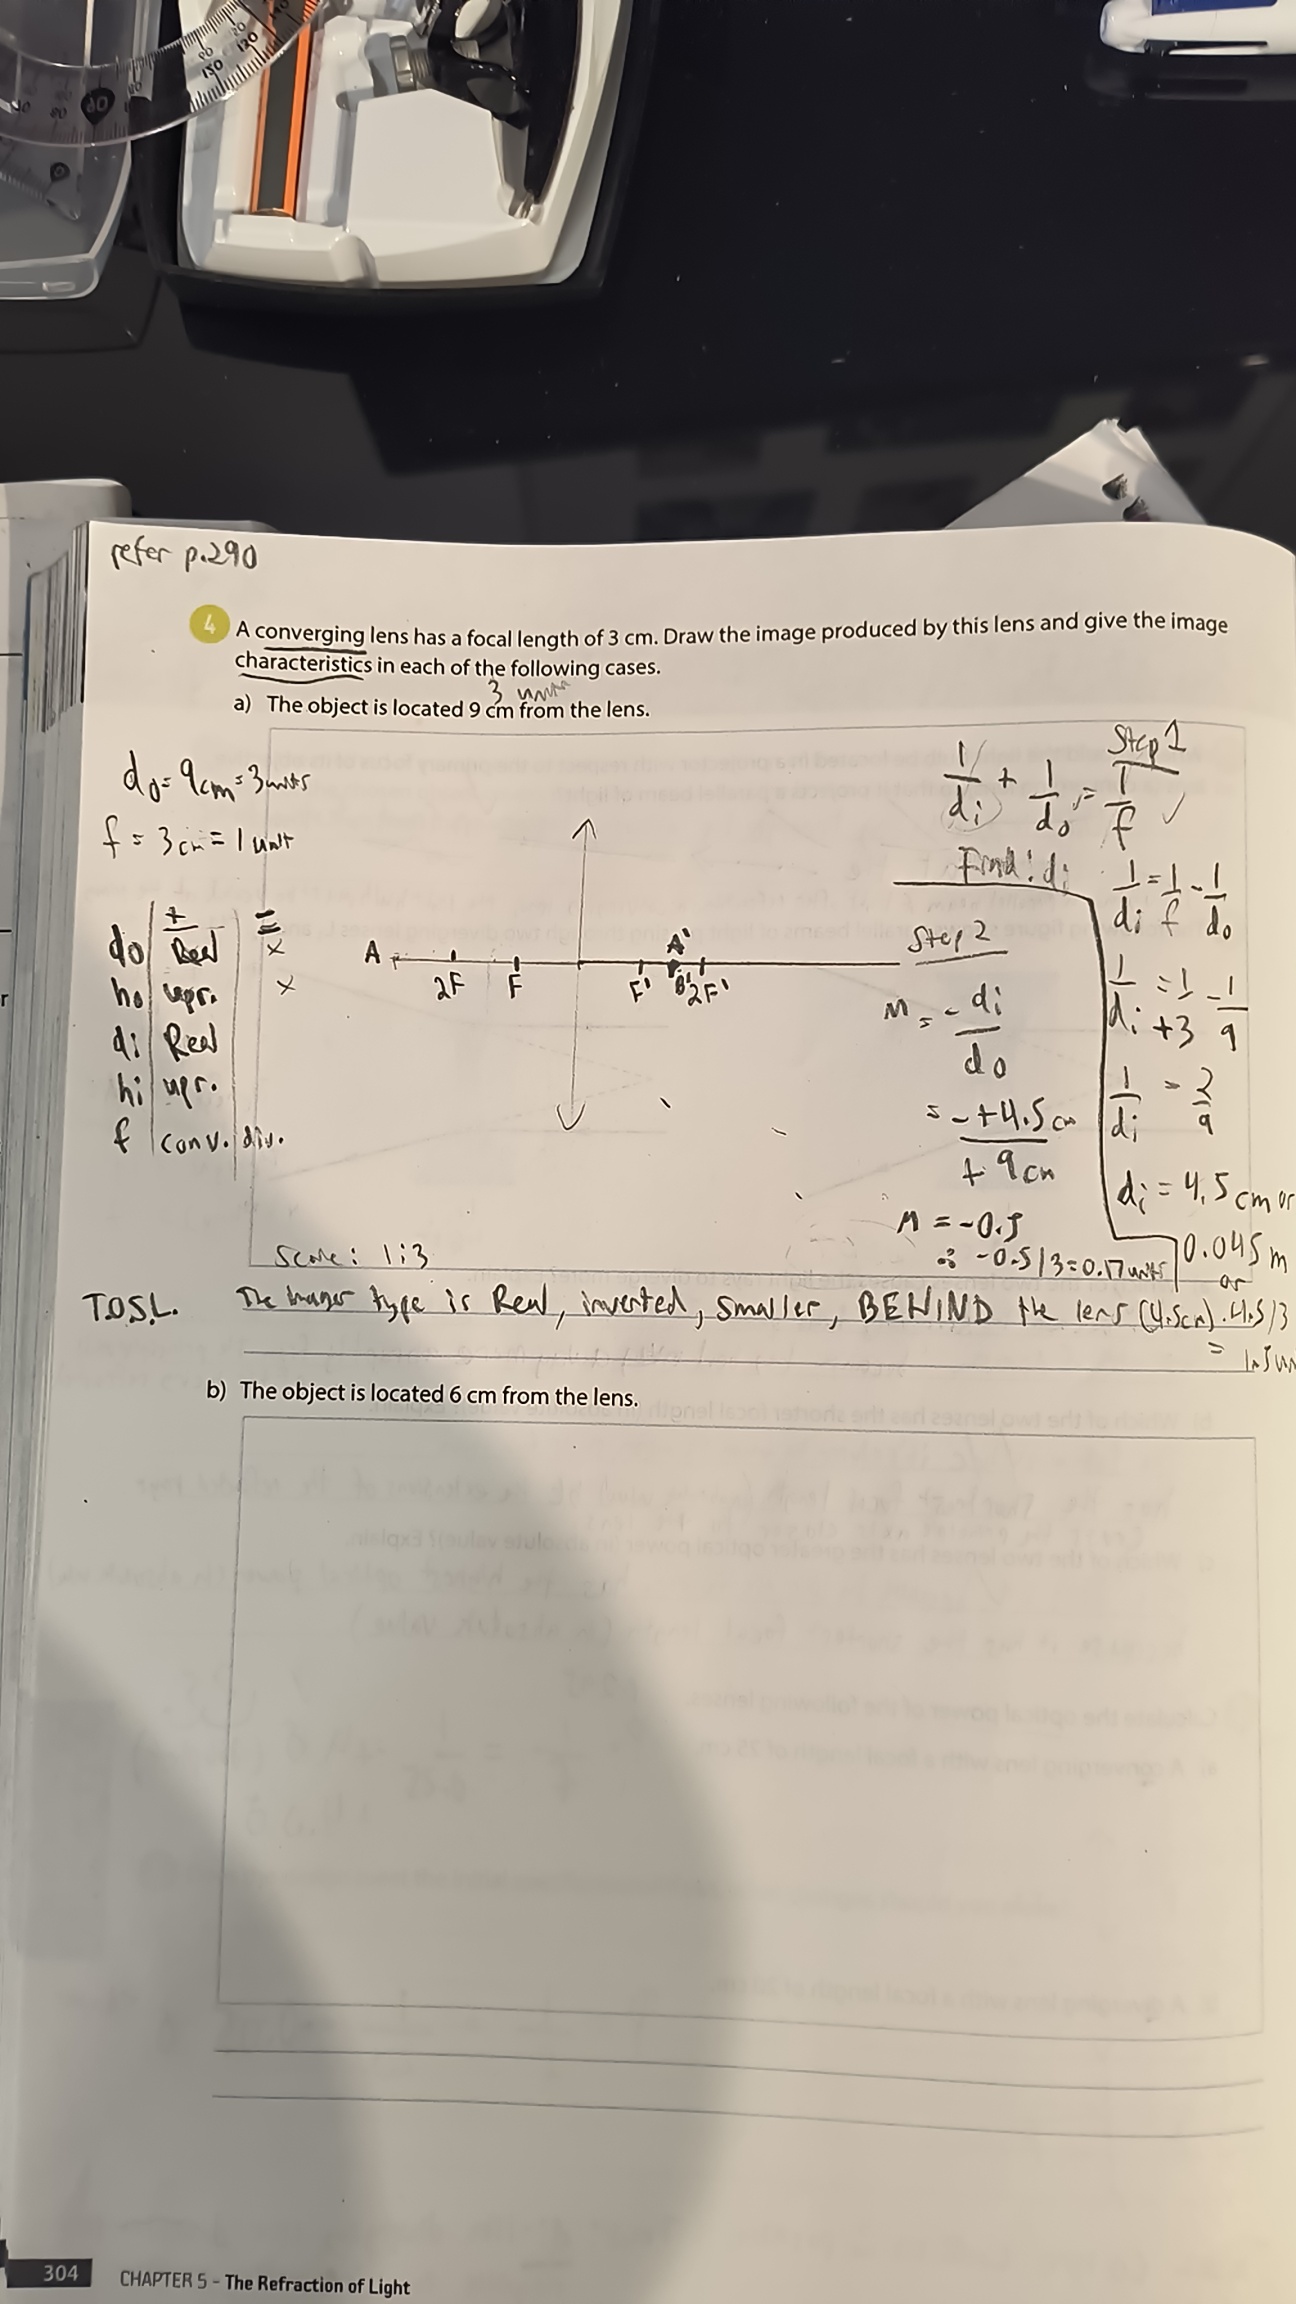 refer p.290
4 A converging lens has a focal length of 3 cm. Draw the image produced by this lens and give the image
characteristics in each of the following cases.
3 units
a) The object is located 9 cm from the lens.
do = 9cm = 3units
f = 3cm = 1 unit
Step 1
1/di + 1/do = 1/f ✓
Find: di
1/di = 1/f - 1/do
1/di = 1/+3 - 1/9
1/di = 2/9
di = 4.5 cm or
0.045 m
or
do + Real - x
ho upr. x
di Real
hi upr.
f conv. div.
A 2F F F' A' B' 2F'
Step 2
M = - di/do
= - +4.5 cm / + 9cm
M = -0.5
∴ -0.5/3 = 0.17 units
Scale: 1:3
T.O.S.L. The image type is Real, inverted, smaller, BEHIND the lens (4.5cm). 4.5/3
= 1.5
b) The object is located 6 cm from the lens.
304 CHAPTER 5 - The Refraction of Light